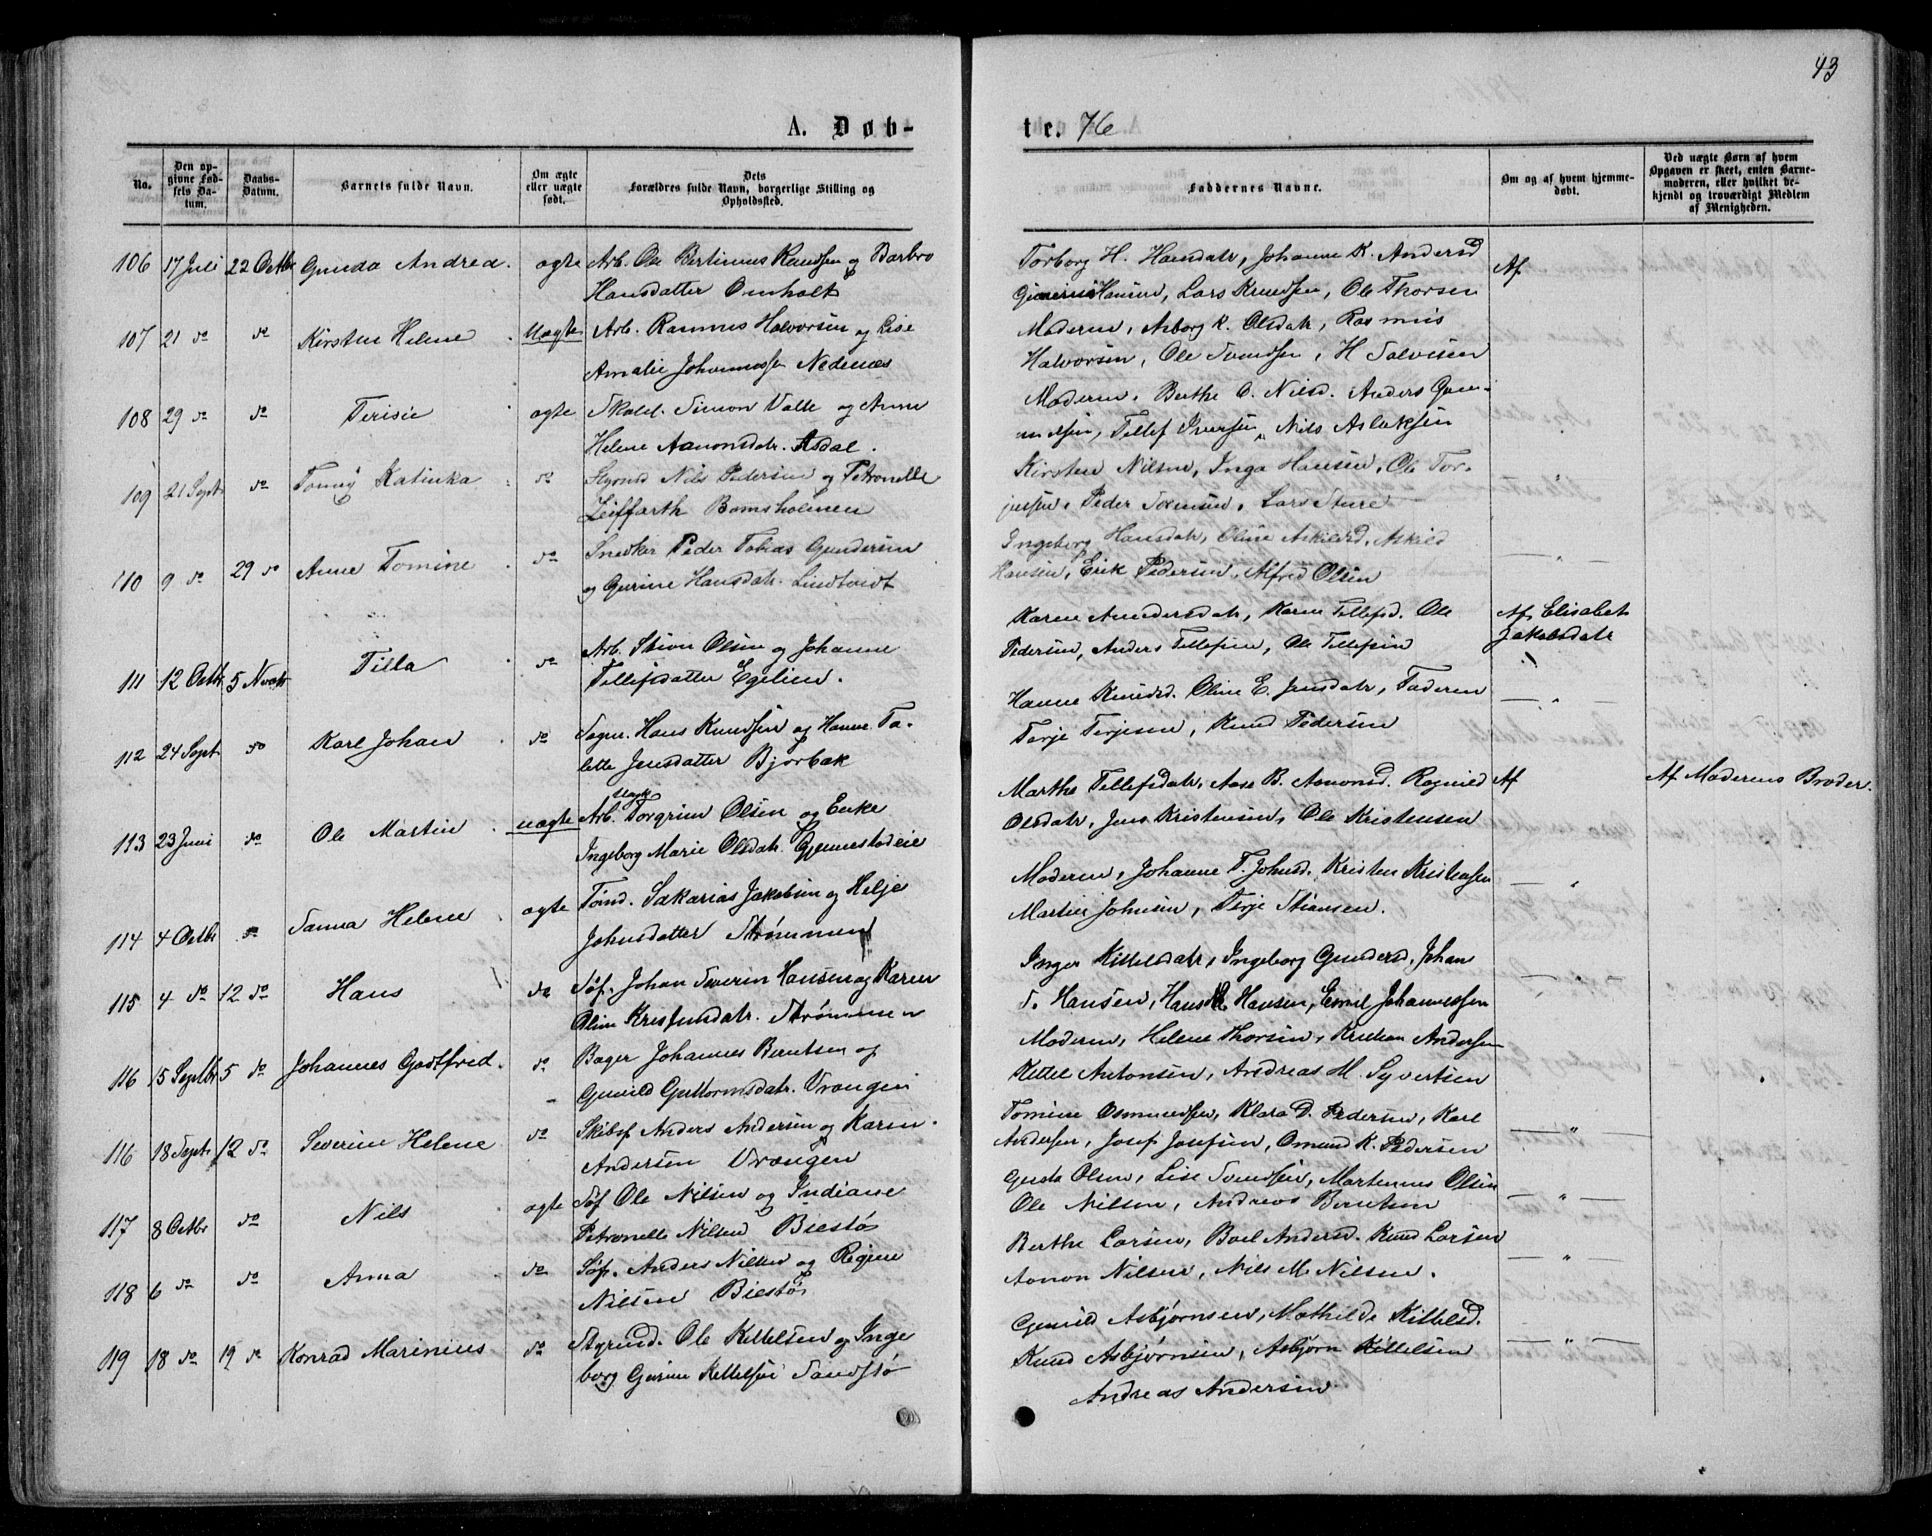 43
A. Døb-
te. 76
No.
Den op-
givne Fød-
sels Da-
tum.
Daabs-
Datum.
Barnets fulde Navn.
Om ægte
eller uægte
født.
Dets
Forældres fulde Navn, borgerlige Stilling og
Opholdssted.
Faddernes Navne.
Om og af hvem hjemme-
døbt.
Ved uægte Børn af hvem
Opgaven er skeet, enten Barne-
moderen, eller hvilket be-
kjendt og troværdigt Medlem
af Menigheden.
106 17 Juli 22 Octbr Gunda Andrea. ægte Arb. Ole Bertinius Knudsen og Barbro
Hansdatter Omholt
Torborg H. Hansdatr, Johanne K. Andersd
Hansen, Lars Knudsen, Ole Thorsen
Af
107 21 do do Kirsten Helene Uægte Arb. Rasmus Halvorsen og Lise
Amalie Johannessen Nedenæs
Moderen, Asborg K. Olsdatr, Rasmus
Halvorsen, Ole Svendsen, H Salvesen
108 29 do do Terisie ægte Skold. Simon Valle og Anne
Helene Aanonsdatr. Asdal.
Moderen, Berthe O. Nilsd. Anders Gun-
Tellef Iversen, Nils Aslaksen
109 21 Sept do Tomig Katinka do Styrmd Nils Pedersen og Petronelle
Leiffarth Bomsholmen
Kirsten Nilsen, Inga Hansen, Ole Tor-
jussen, Peder Sørensen, Lars Sture
"
110 9 do 29 do Anne Tomine do Snedker Peder Tobias Gundersen
og Gurine Hansdatr. Lindtveidt
Ingeborg Hansdatr, Oline Askilsd. Askild
Hansen, Erik Pedersen, Alfred Olsen
"
111 12 Octbr 5 Novbr Tilla do Arb. Stian Olsen og Johanne
Tellefsdatter Egelien.
Karen Andersdatr, Karen Tellefsd. Ole
Pedersen, Anders Tellefsen, Ole Tellefsen
Af Elisabet
Jakobsdatr
112 24 Sept do Karl Johan do Sagm. Hans Knudsen og Hanne Ta-
lette Jensdatter Bjorbæk
Hanne Knudsd. Oline E. Jensdatr, Faderen
Terje Terjesen, Knud Pedersen
"
113 23 Juni do Ole Martin uægte Arb. Torgrim Olsen og Enke
Ingeborg Marie Olsdatr. Gjennestadeie
Marthe Tellefsdatr, Aase B. Aanonsd. Ragnild
Olsdatr, Jens Kristensen, Ole Kristensen
Af Af Moderens Broder.
114 4 Octbr do Sanna Helene ægte Tømd. Sakarias Jakobsen og Helje
Johnsdatter Strømmen
Moderen, Johanne T. Johnsd. Kristen Kristensen
Martin Johnsen, Terje Stiansen.
"
115 4 do 12 do Hans do Søf. Johan Severin Hansen og Karen
Oline Kresfundatr. Strømmen
Inger Kittelsdatr, Ingeborg Gundersd. Johan
S. Hansen, Hans K. Hansen, Emil Johannessen
"
116 15 Septbr 5 do Johannes Godtfred. do Bager Johannes Berntsen og
Gunild Guttormsdatr. Vrangen
Moderen, Helene Thorsen, Kristian Andersen
Kittel Antonsen, Andreas M. Syvertsen
116 18 Septr 12 do Severine Helene do Skibsf Anders Andersen og Karen
Andersen Vrængen
Tomine Osmundsen, Klara D. Pedersen, Karl
Andersen, Josef Josefsen, Omund K. Pedersen
"
117 8 Octbr do Nils ægte Søf Ole Nilsen og Indiane
Petronelle Nilsen Biestø
Gusta Olsen, Lise Svendsen, Martinius Olsen
Ole Nilsen, Andreas Berntsen
"
118 6 do do Anna do Søf. Anders Nilsen og Regine
Nilsen Biestø
Berthe Larsen, Boel Andersd. Knud Larsen
Aanon Nilsen, Nils M. Nilsen.
"
119 18 do 19 do Konrad Marinius do Styrmd. Ole Kittelsen og Inge
borg Gurine Kittelsen Sandstø
Gunild Asbjørnsen, Mathilde Kittelsd.
Knud Asbjørnsen, Asbjørn Kittelsen
Andreas Andersen
"